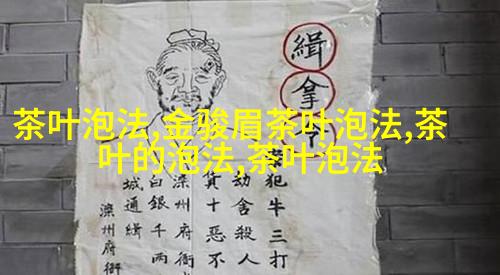 茶叶泡法,金骏眉茶叶泡法,茶
叶的泡法,茶叶泡法
緝拿
犯牛三打
劫舍殺人
十惡不
滦州府衙
白銀千两
城通緝
滦州府衙